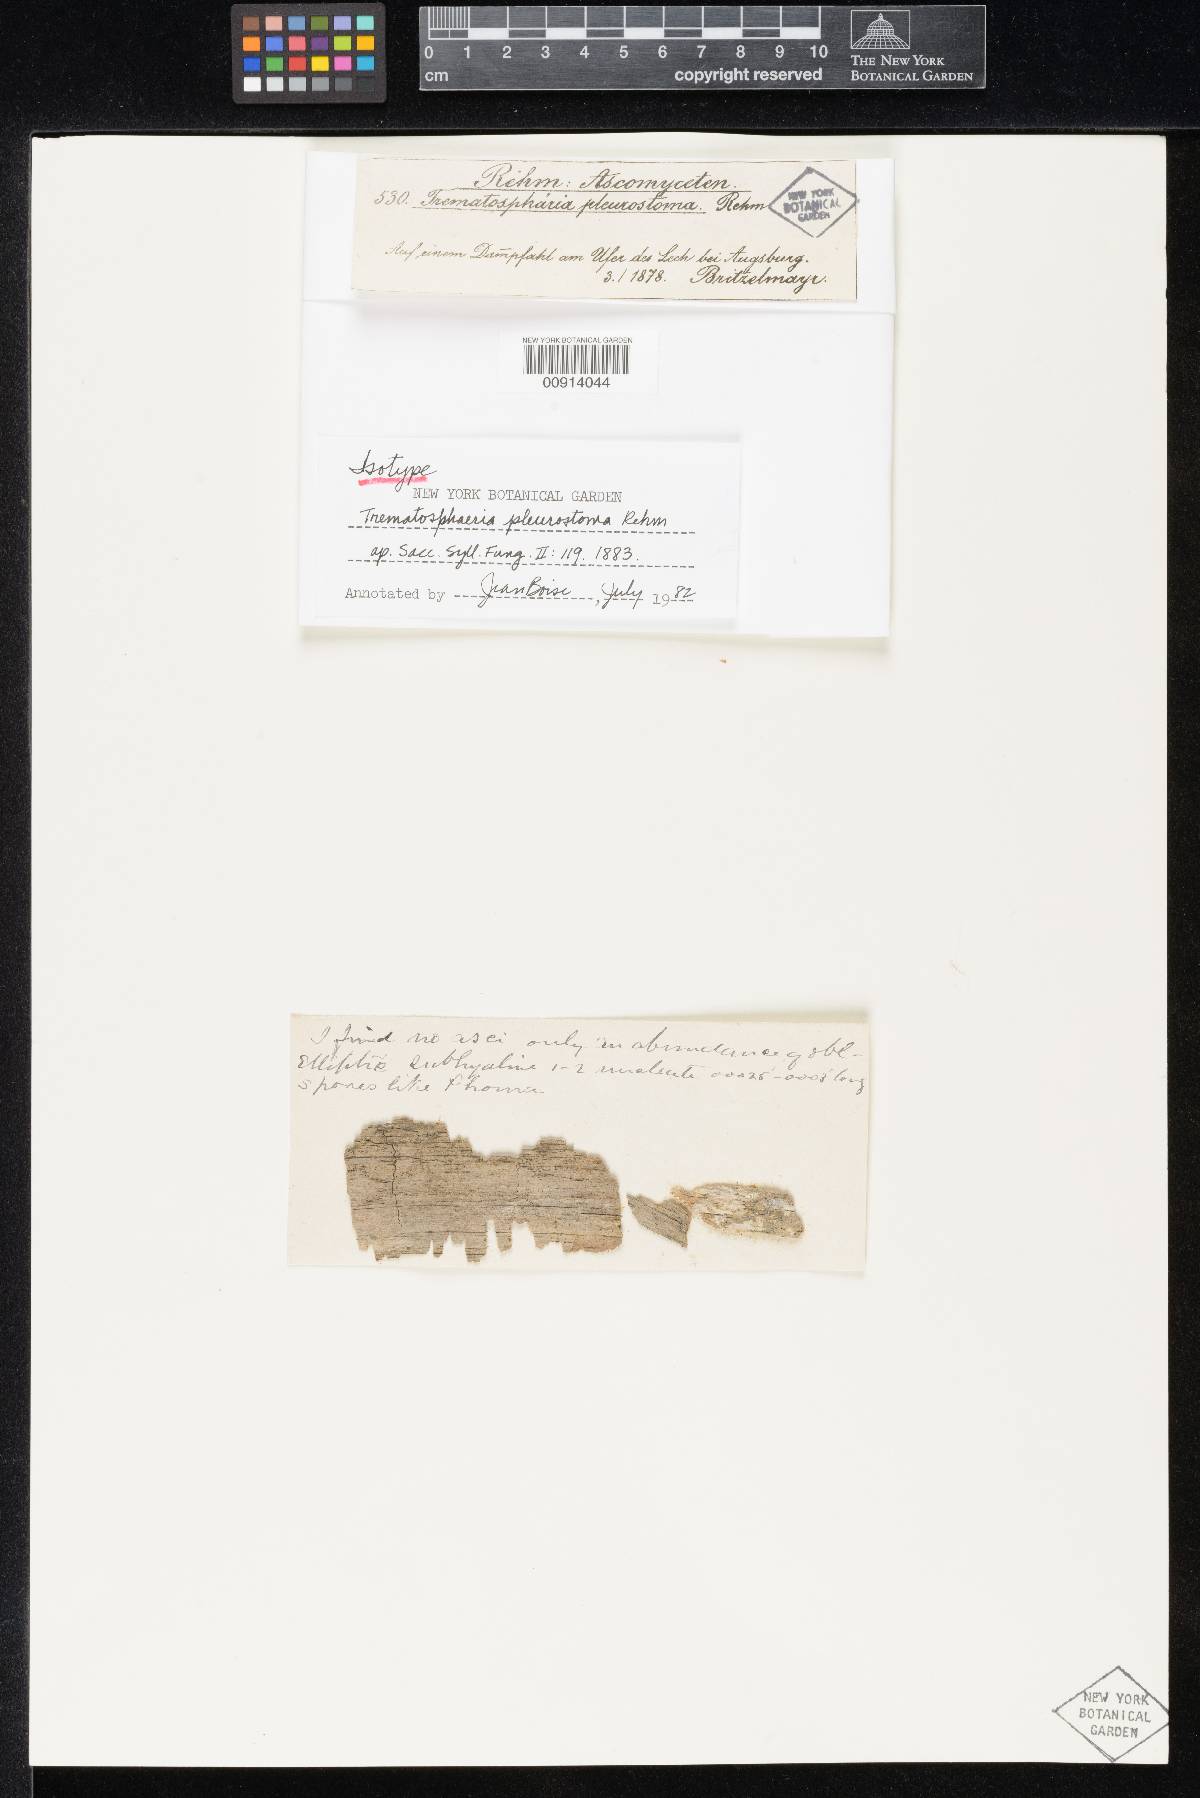 0 1 2 3 4 5 6 7 8 9 10
cm copyright reserved
THE NEW YORK
BOTANICAL GARDEN
Rehm: Ascomyceten.
530. Trematosphäria pleurostoma. Rehm
NEW YORK
BOTANICAL
GARDEN
Auf einem Dampfahl am Ufer des Lech bei Augsburg.
3./1878. Britzelmayr.
NEW YORK BOTANICAL GARDEN
00914044
Isotype
NEW YORK BOTANICAL GARDEN
Trematosphaeria pleurostoma Rehm
ap. Sacc. Syll. Fung. II: 119. 1883.
Annotated by Jean Boise, July 1982
I find no asci only an abundance of obl-
Elliptic subhyaline 1-2 nucleate 00025-0003 long
spores like Phoma
NEW YORK
BOTANICAL
GARDEN